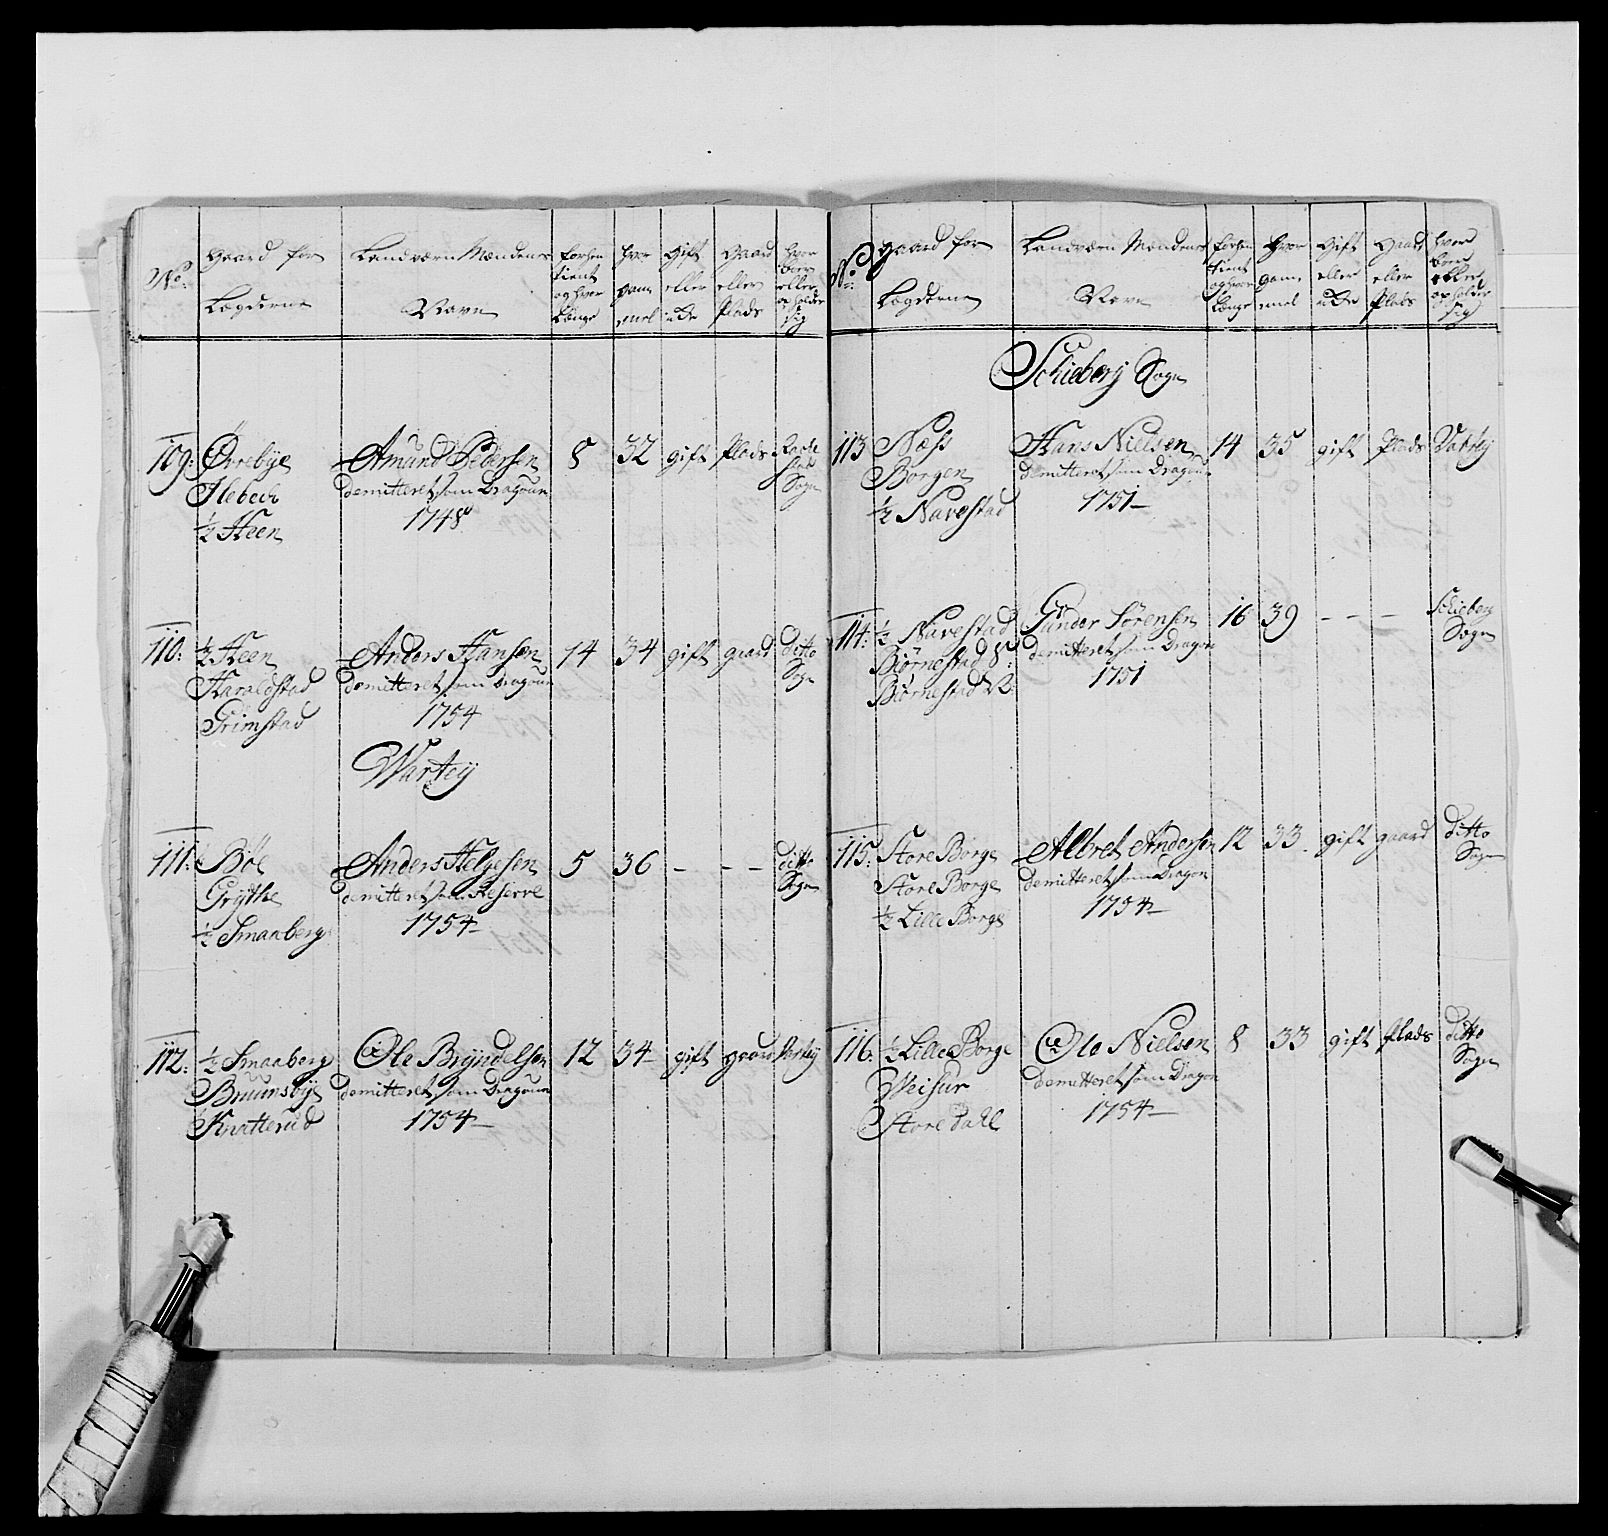 No:
Gaard for
Lægderne
Landværn Mændenes
Navn
forhen
tient
og hvor
længe
hvor
gam
mel
Gift
eller
ude
Gaard
eller
Plads
hvor
boer
eller
opholder
sig
109:
Ørrebÿe
Ilebech
½ Heen
Amund Pedersen
demitteret som Dragoun
1748
8
32
gift
Plads
Rade
stad
Sogn
110:
½ Heen
Haraldstad
Grimstad
Anders Hansen
demitteret som Dragoun
1754
14
34
gift
gaard
ditto
Sogn
Warteÿ
111:
Bøe
Grÿthe
½ Smaaberg
Anders Helgesen
demitteret som Reserve
1754
5
36
-
- -
ditto
Sogn
112:
½ Smaaberg
Bruunsbÿe
Knatterud
Ole Brÿndelsen
demitteret som Dragoun
1754
12
34
gift
gaard
Varteÿ
No:
Gaard for
Lægderne
Landværn Mændenes
Navn
forhen
tient
og hvor
længe
Hvor
gam
mel
Gift
eller
ude
Gaard
eller
Plads
hvor
boer
eller
opholder
sig
Schieberg Sogn
113
Næss
Borgen
½ Navestad
Hans Nielsen
demitteret som Dragoun
1751
14
35
gift
Plads
Vartey
114:
½ Navestad
Biørnestad
Biørnestad
Gunder Sørensen
demitteret som Dragon
1751
16
39
- - -
Schieberg
Sogn
115:
Store Borge
Store Borge
½ Lille Borge
Albret Andersen
demitteret som Dragon
1754
12
33
gift
gaard
ditto
Sogn
116.
½ Lille Borge
Weisur
Store Dahl
Ole Nielsen
demitteret som Dragon
1754
8
33
gift
Plads
ditto
Sogn